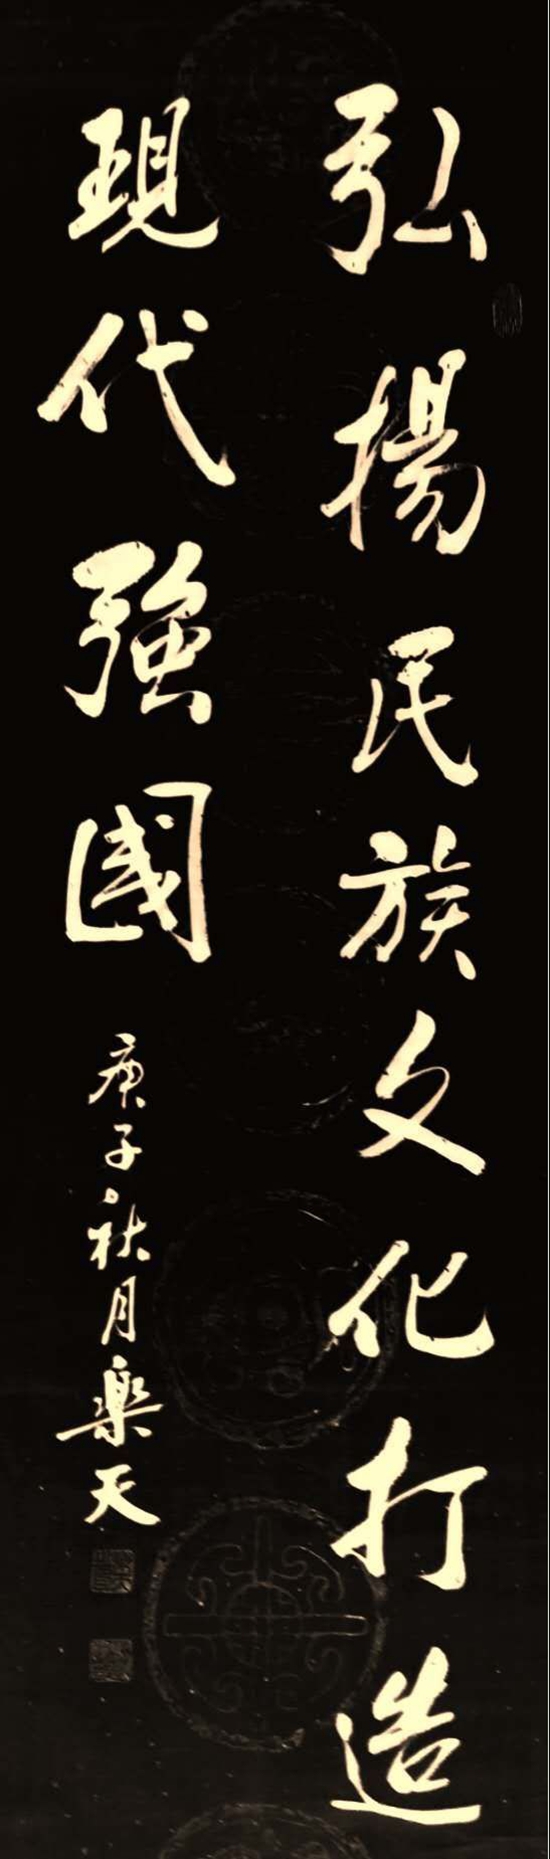 弘揚民族文化打造
現代強國
庚子秋月樂天